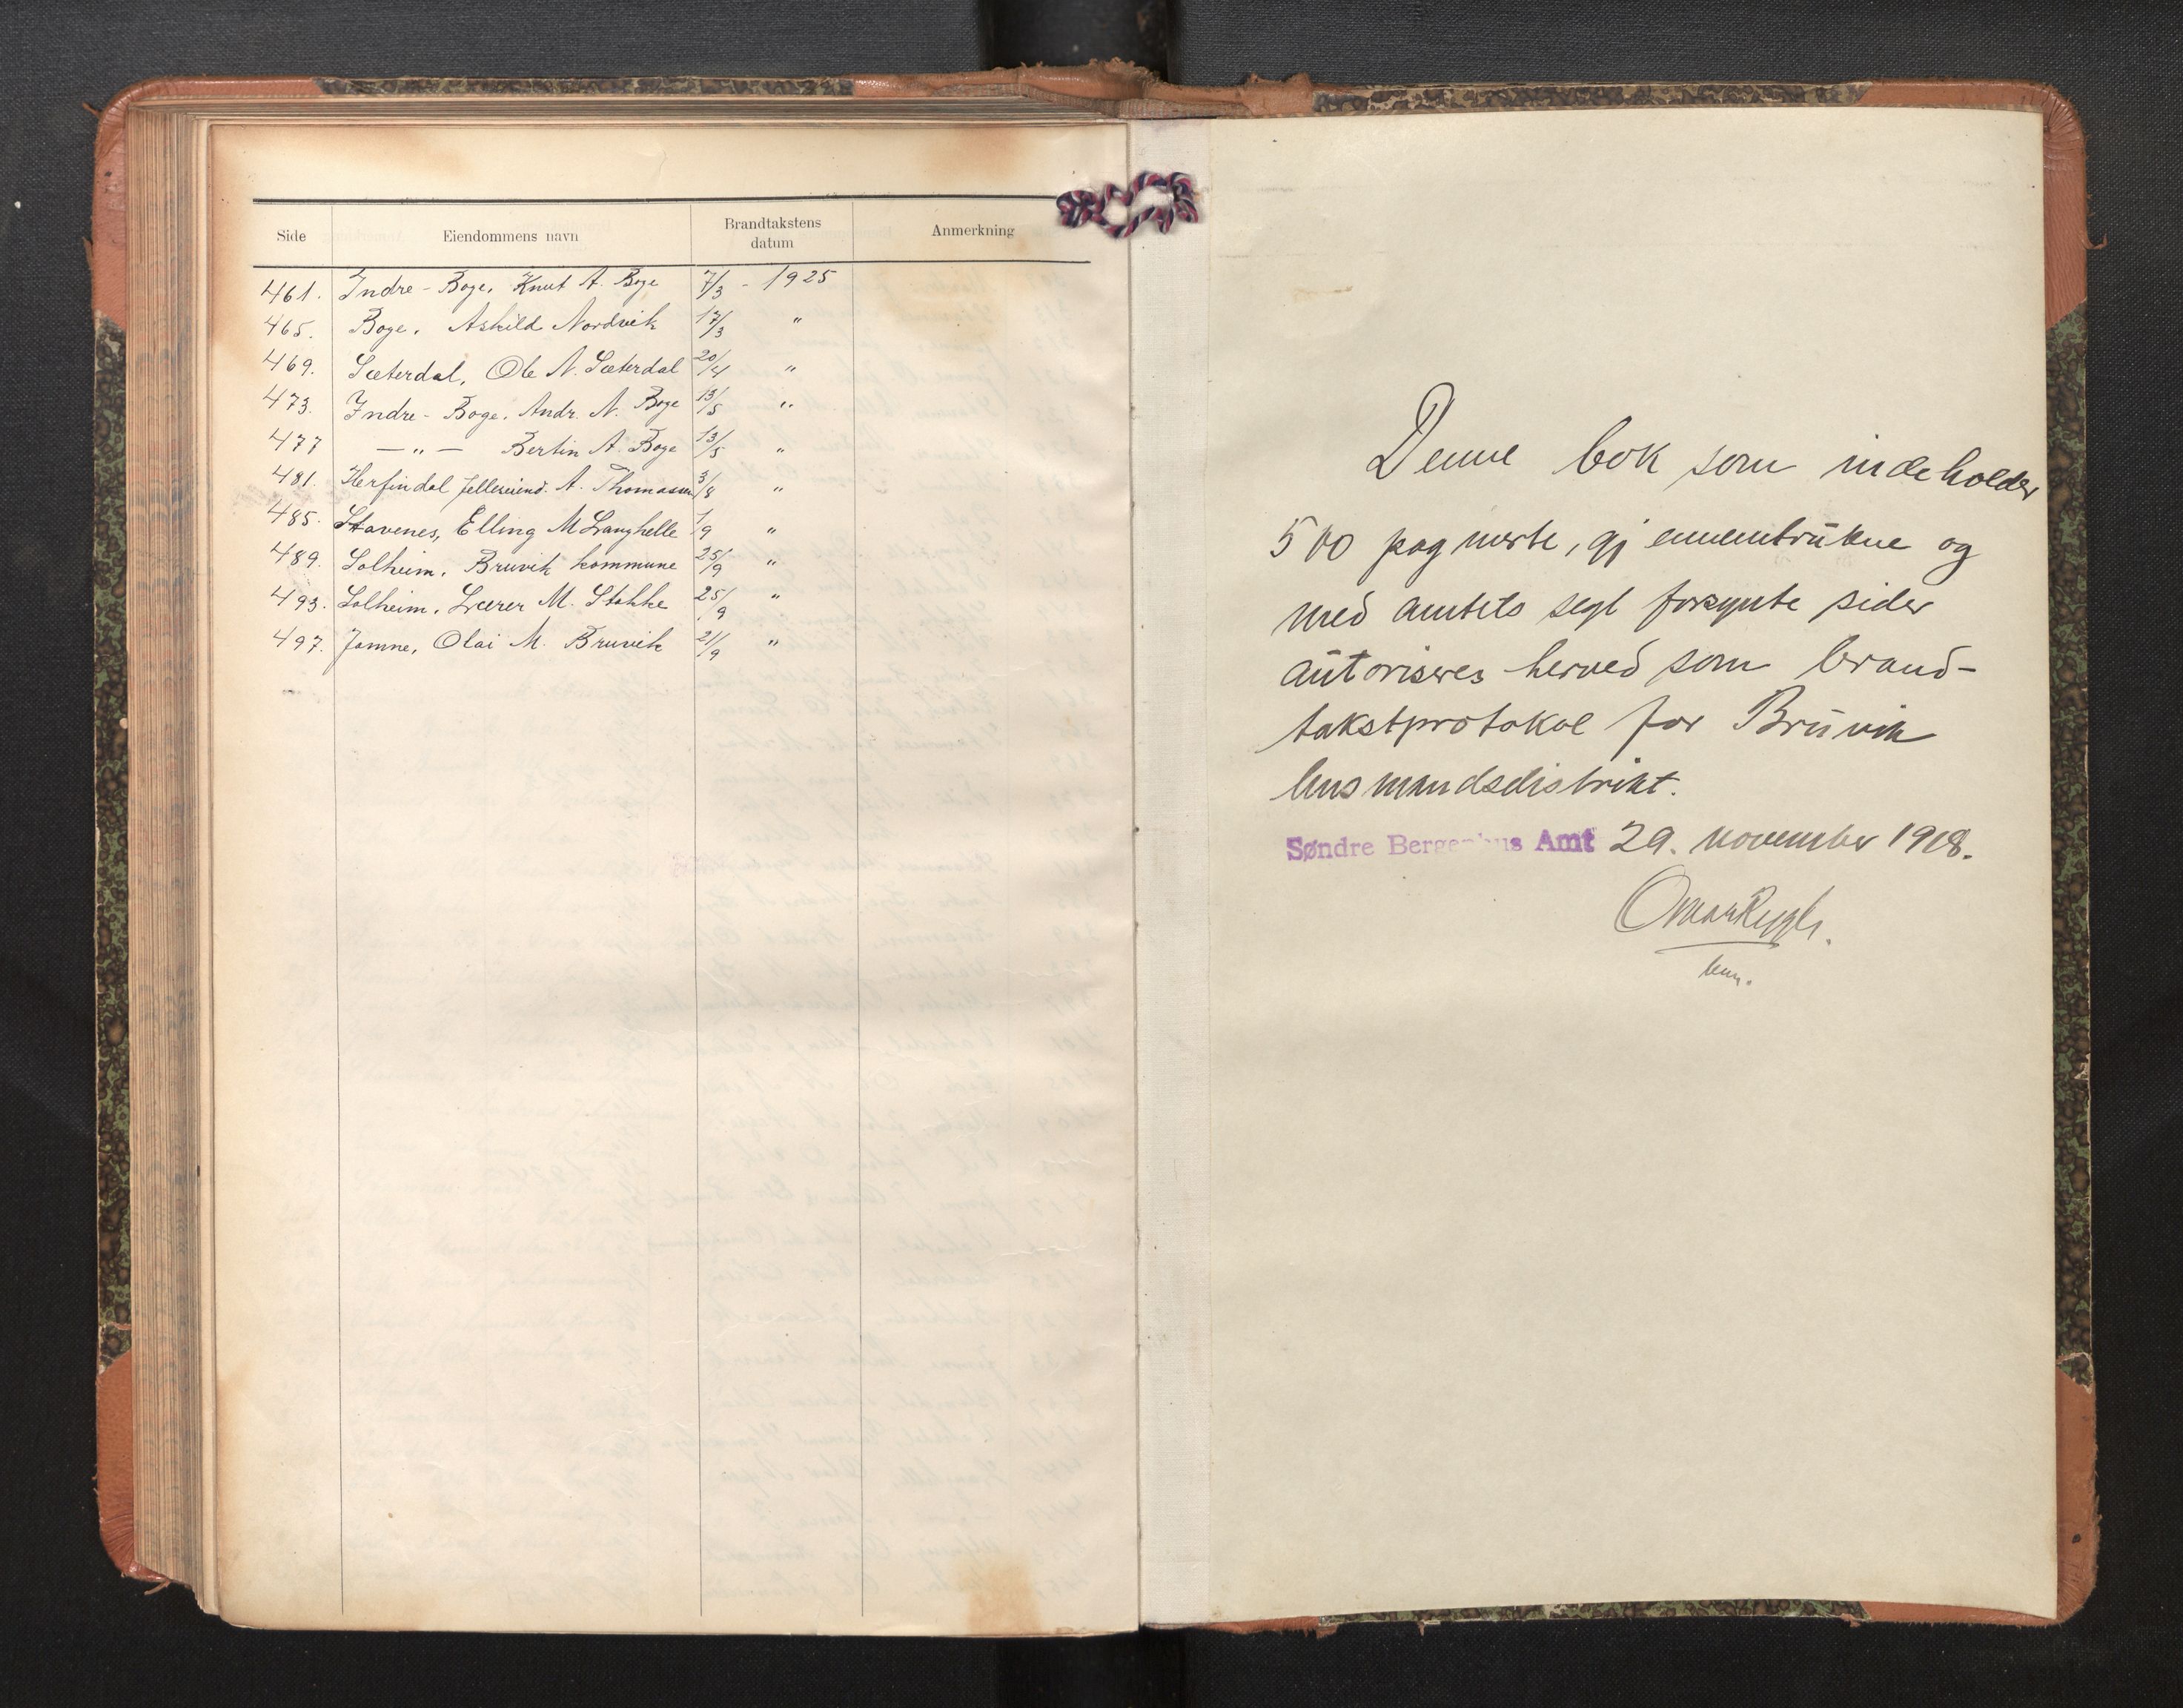 Side Eiendommens navn Brandtakstens datum Anmerkning
461. Indre-Boge, Knut A. Boge 7/3 - 1925
465. Boge, Askild Nordvik 17/3 "
469. Sæterdal, Ole N. Sæterdal 20/4 "
473. Indre-Boge, Andr. N. Boge 13/5 "
477 — " — Bertin A. Boge 13/5 "
481. Herfindal felleseiend. A. Thomassen 3/8 "
485. Stavenes, Elling M Langhelle 1/9 "
489. Solheim, Bruvik kommune 25/9 "
493. Solheim, Lærer M. Stokke 25/9 "
497. Jamne, Olai M. Bruvik 21/9 "
Denne bok som indeholder
500 paginerte, gjennemtrukne og
med amtets segl forsynte sider
autoriseres herved som brand-
takstprotokol for Bruvik
lensmandsdistrikt.
Søndre Bergenhus Amt 29. november 1918.